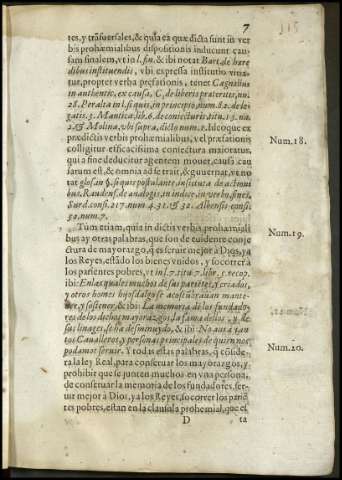 7
tes, y trāsuersales, & quia ea quæ dicta sunt in ver
bis prohæmialibus dispositionis inducunt cau-
sam finalem, vt in l. fin. & ibi notat Bart. de hære
dibus instituendis, vbi expressa institutio vitia-
tur, propter verba præfationis, tenet Cagnolus
in authentic, ex causa, C, de liberis præteritis, nu.
28. Peralta in l. si quis, in principio, num. 82. de le-
gatis. 3. Mantica, lib. 6. de coniecturis
& Molina, vbi supra, dicto num. 2. Ideoque ex
prædictis verbis prohemialibus, vel præfationis
colligitur efficacissima coniectura maioratus,
qui a fine deducitur agentem mouet, causa cau
sarum est, & omnia ad se trait, & guuernat, ve no
tat glos. in §. si quis postulante, institura de actioni
bus. Raudens. de analogis, in indice, in verbo, finis,
Surd. consi. 217. num. 4. 31. & 32. Albensis consi.
32. num. 7.
Num. 18.
Tum etiam, quia in dictis verbis, prohæmiali
bus ay otras palabras, que son de euidente conje
ctura de mayorazgo, q̃ es seruir mejor à Dios, y a
los Reyes, està do los bienes vnidos, y socorrer à
los parientes pobres, vt in l. 7. titu. 7. libr. 5. recop.
ibi: En las quales muchos de sus pariētes, y criados,
y otros homes hijosdalgo se acostūbrauan mante-
ner, y sostener, & ibi: La memoria de los fundado-
res de los dichos mayorazgos, la fama dellos, y de
sus linages, se ha desminuydo, & ibi: No aura tan
tos Caualleros, y personas principales de quien nos
podamos seruir. Y todas estas palabras, q̃ cōside-
ra la ley Real, para conseruar los mayorazgos, y
prohibir que se junten muchos en vna persona,
de conseruar la memoria de los fundadores, ser-
uir mejor à Dios, ya los Reyes, socorrer los parie
tes pobres, estan en la clausula prohemial, que es
D ta
Num. 19.
Num. 20.